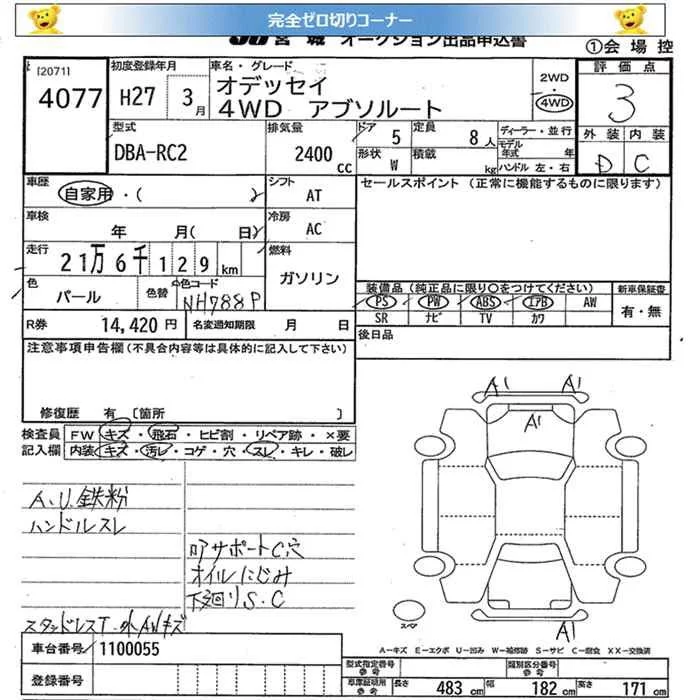 完全ゼロ切りコーナー
JU宮城 オークション出品申込書
①会場控
[2071]
4077
初度登録年月
H27 3月
車名・グレード
オデッセイ
4WD アブソルート
2WD
・
4WD
評価点
3
外装 内装
D C
型式
DBA-RC2
排気量
2400 cc
ドア 5
定員 8人
形状 W
積載 kg
ディーラー・並行
モデル年式 年
ハンドル 左・右
車歴
自家用・( )
シフト
AT
セールスポイント (正常に機能するものに限ります)
車検
年 月( 日)
冷房
AC
走行
21万6千129km
燃料
ガソリン
色
パール
色替
色コード
NH788P
装備品(純正品に限り○をつけてください)
PS PW ABS エアB AW
SR ナビ TV カワ
新車保証書
有・無
R券 14,420円
名変通知期限 月 日
後日品
注意事項申告欄(不具合内容等は具体的に記入して下さい)
修復歴 有 [箇所 ]
検査員記入欄
FW キズ・飛石・ヒビ割・リペア跡・×要
内装 キズ・汚レ・コゲ・穴・スレ・キレ・破レ
A1 A1
A1
A.U.鉄粉
ハンドルスレ
コアサポートC穴
オイルにじみ
下廻りS.C
スタッドレスT.外AWキズ
スペア
A1
A−キズ E−エクボ U−凹み W−補修跡 S−サビ C−腐食 XX−交換済
車台番号 1100055
登録番号
型式指定番号 参考
類別区分番号 参考
車庫証明用 参考
長さ 483 cm 幅 182 cm 高さ 171 cm